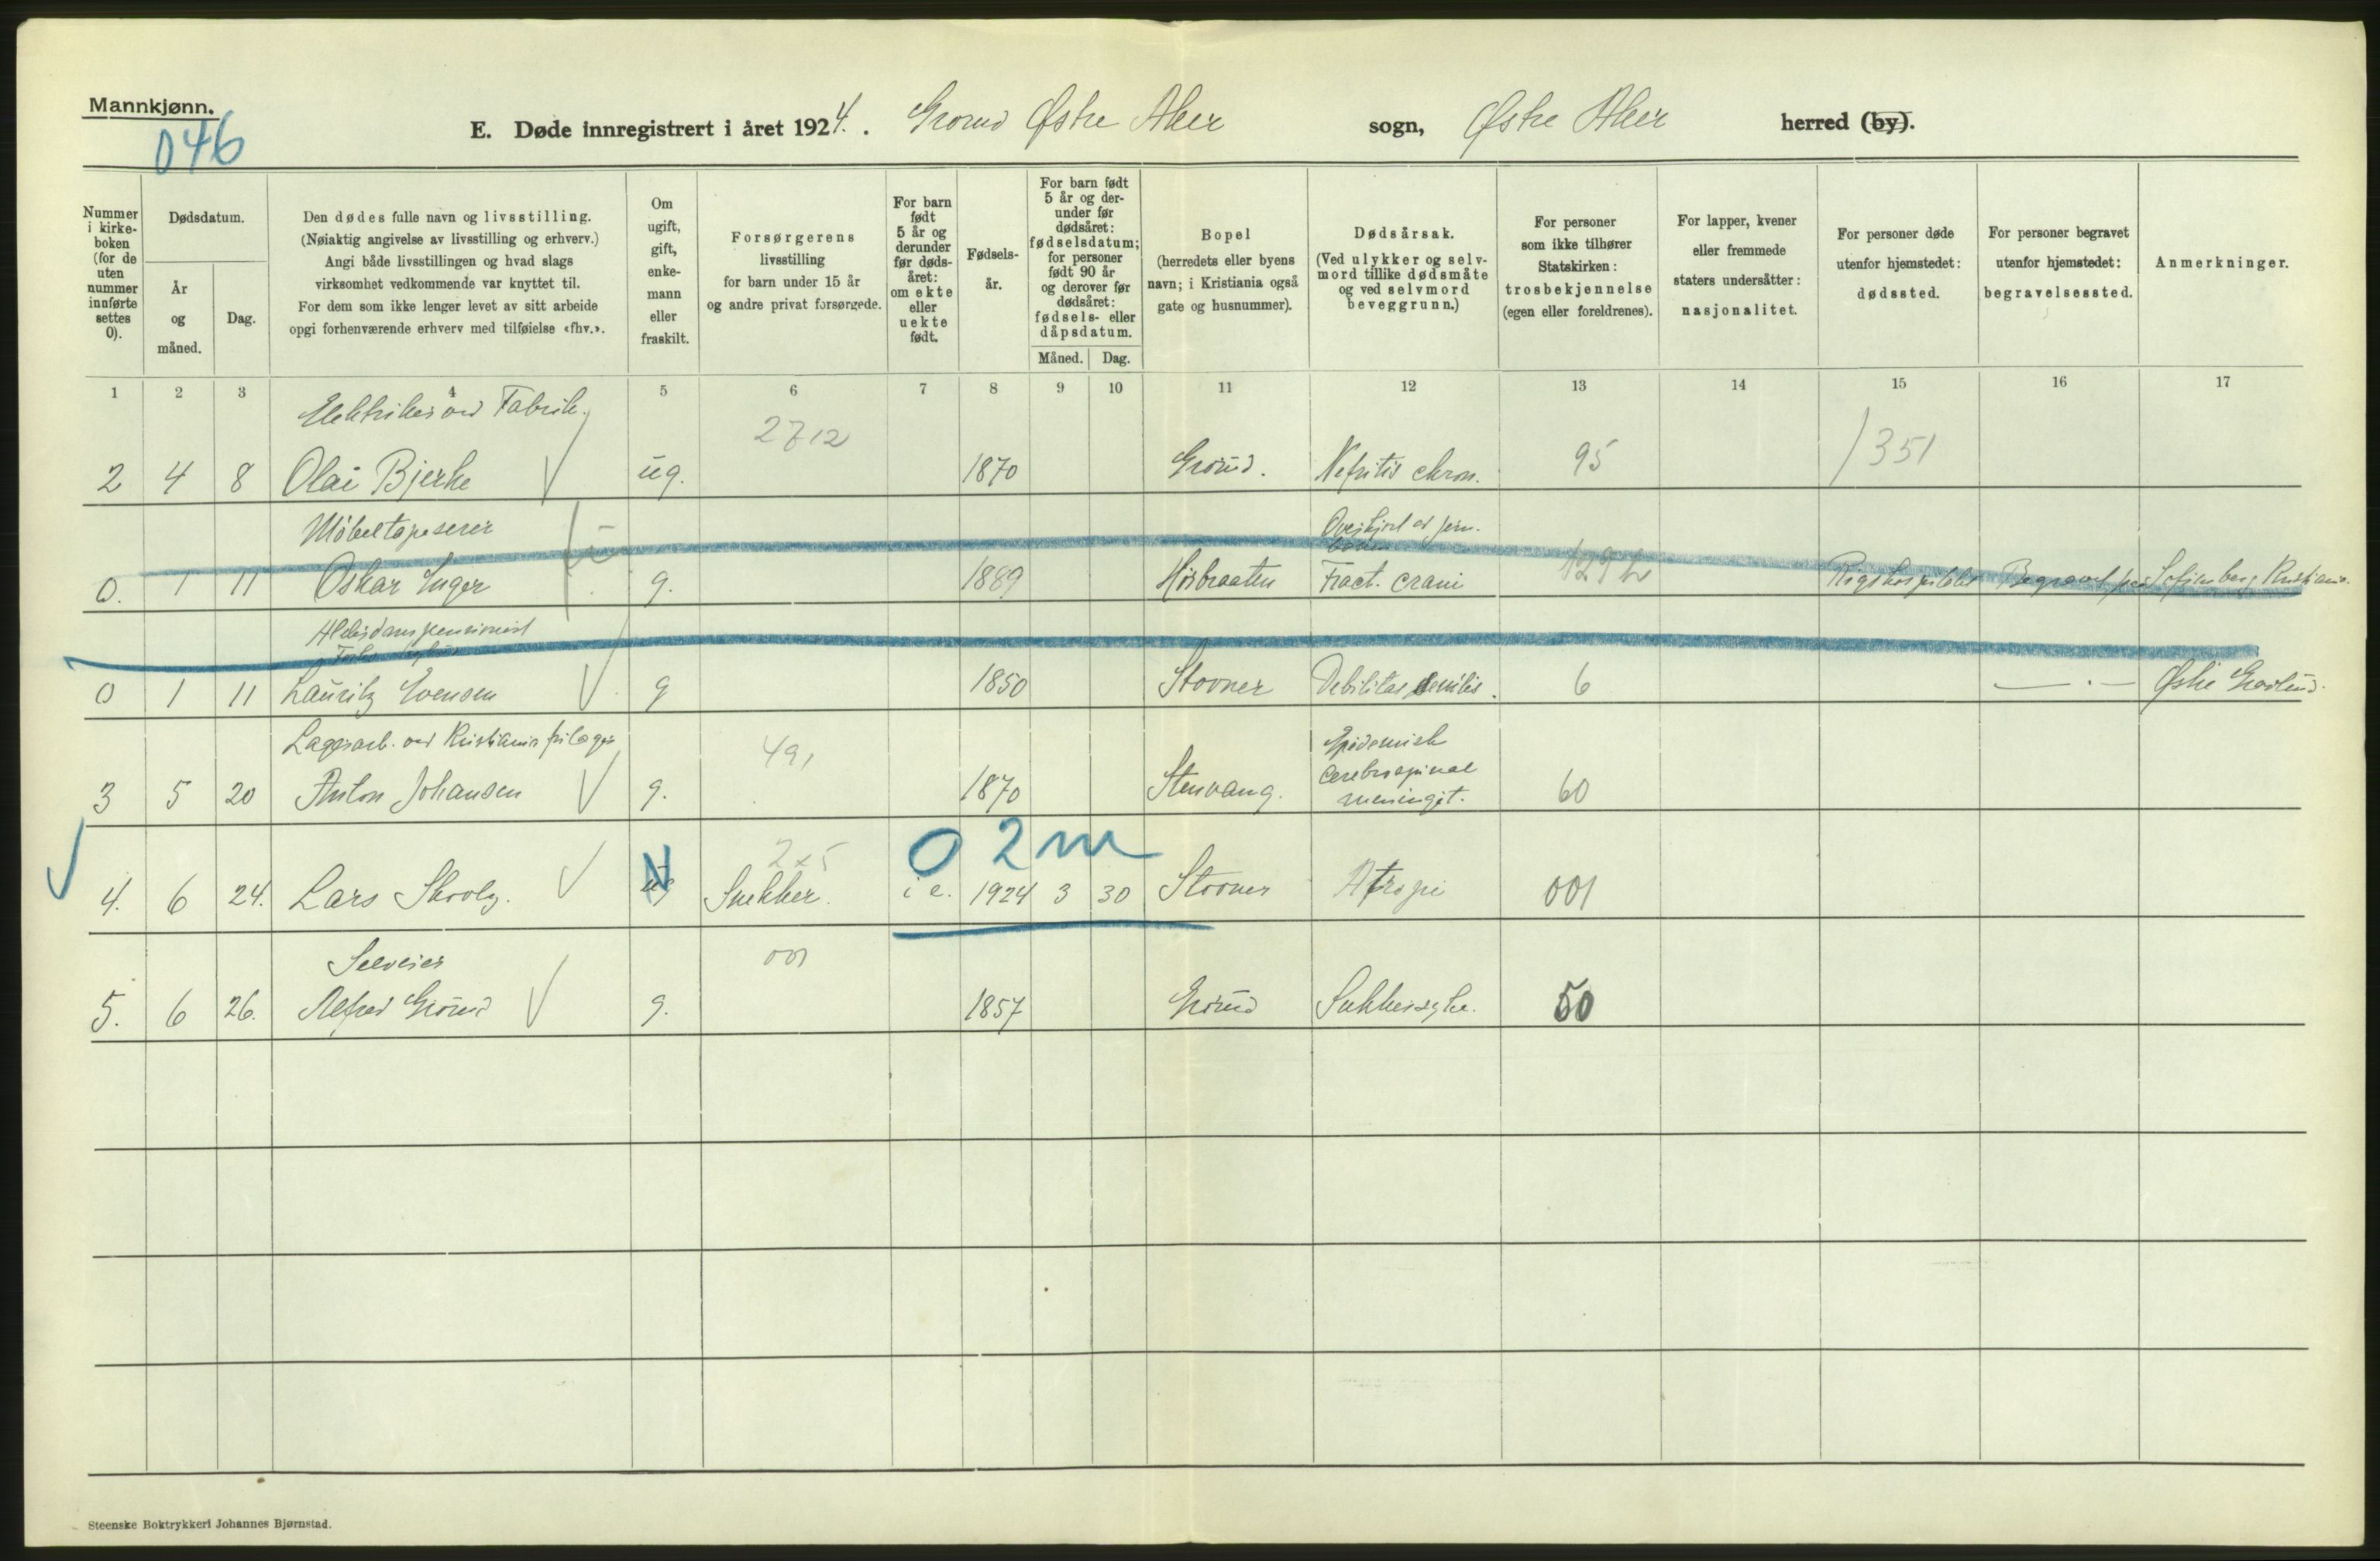 Mannkjønn.
046
E. Døde innregistrert i året 1924. Grorud Østre Aker sogn, Østre Aker herred (by).
Nummer i kirkeboken (for de uten nummer innførte settes 0).
Dødsdatum.
År og måned.
Dag.
Den dødes fulle navn og livsstilling.
(Nøiaktig angivelse av livsstilling og erhverv.)
Angi både livsstillingen og hvad slags
virksomhet vedkommende var knyttet til.
For dem som ikke lenger levet av sitt arbeide
opgi forhenværende erhverv med tilføielse «fhv.».
Om ugift, gift, enkemann eller fraskilt.
Forsørgerens
livsstilling
for barn under 15 år
og andre privat forsørgede.
For barn født 5 år og derunder før dødsåret: om ekte eller uekte født.
Fødselsår.
For barn født 5 år og derunder før dødsåret: fødselsdatum; for personer født 90 år og derover før dødsåret: fødsels- eller dåpsdatum.
Måned.
Dag.
Bopel
(herredets eller byens
navn; i Kristiania også
gate og husnummer).
Dødsårsak.
(Ved ulykker og selvmord tillike dødsmåte
og ved selvmord
beveggrunn.)
For personer
som ikke tilhører
Statskirken:
trosbekjennelse
(egen eller foreldrenes).
For lapper, kvener
eller fremmede
staters undersåtter:
nasjonalitet.
For personer døde
utenfor hjemstedet:
dødssted.
For personer begravet
utenfor hjemstedet:
begravelsessted.
Anmerkninger.
1 2 3 4 5 6 7 8 9 10 11 12 13 14 15 16 17
Elektriker ved Fabrik.
2712
2 4 8 Olai Bjerke ug. 1870 Grorud. Nefritis chron. 95 1351
Møbeltapeserer
Overkjørt av jern.
0. 1 11 Oskar Inger g. 1889 Høibraaten Fract. crani Rigshospitalet Begravet paa Sofienberg Kristiania.
Alderdomspensionist
0 1 11 Lauritz Evensen g 1850 Stovner Debilitas senilis. 6 — . — Østre Gravlund.
Lagerarb. ved Kristiania frilager
491
Epidemisk
3 5 20 Anton Johansen g. 1870 Stenvang. Cerebrospinal meningit. 60
02m
2x5
4. 6 24. Lars Skovly. ug Snekker. i e. 1924 3 30 Stovner Atropi 001
Selveier
001
5. 6 26. Alfred Grorud g. 1857 Grorud Sukkersyke. 50
Steenske Boktrykkeri Johannes Bjørnstad.